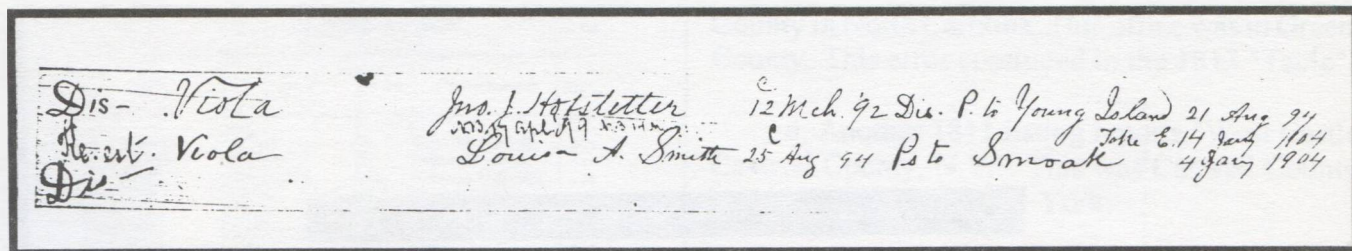 Dis- Viola Jno. J. Hofstetter C 12 Mch. '92 Dis. P. to Young Island 21 Aug 94
Re. est. Viola Louisa A. Smith C 25 Aug 94 Ps to Smoak Take E. 14 Jany 1904 4 Jany 1904
Dis